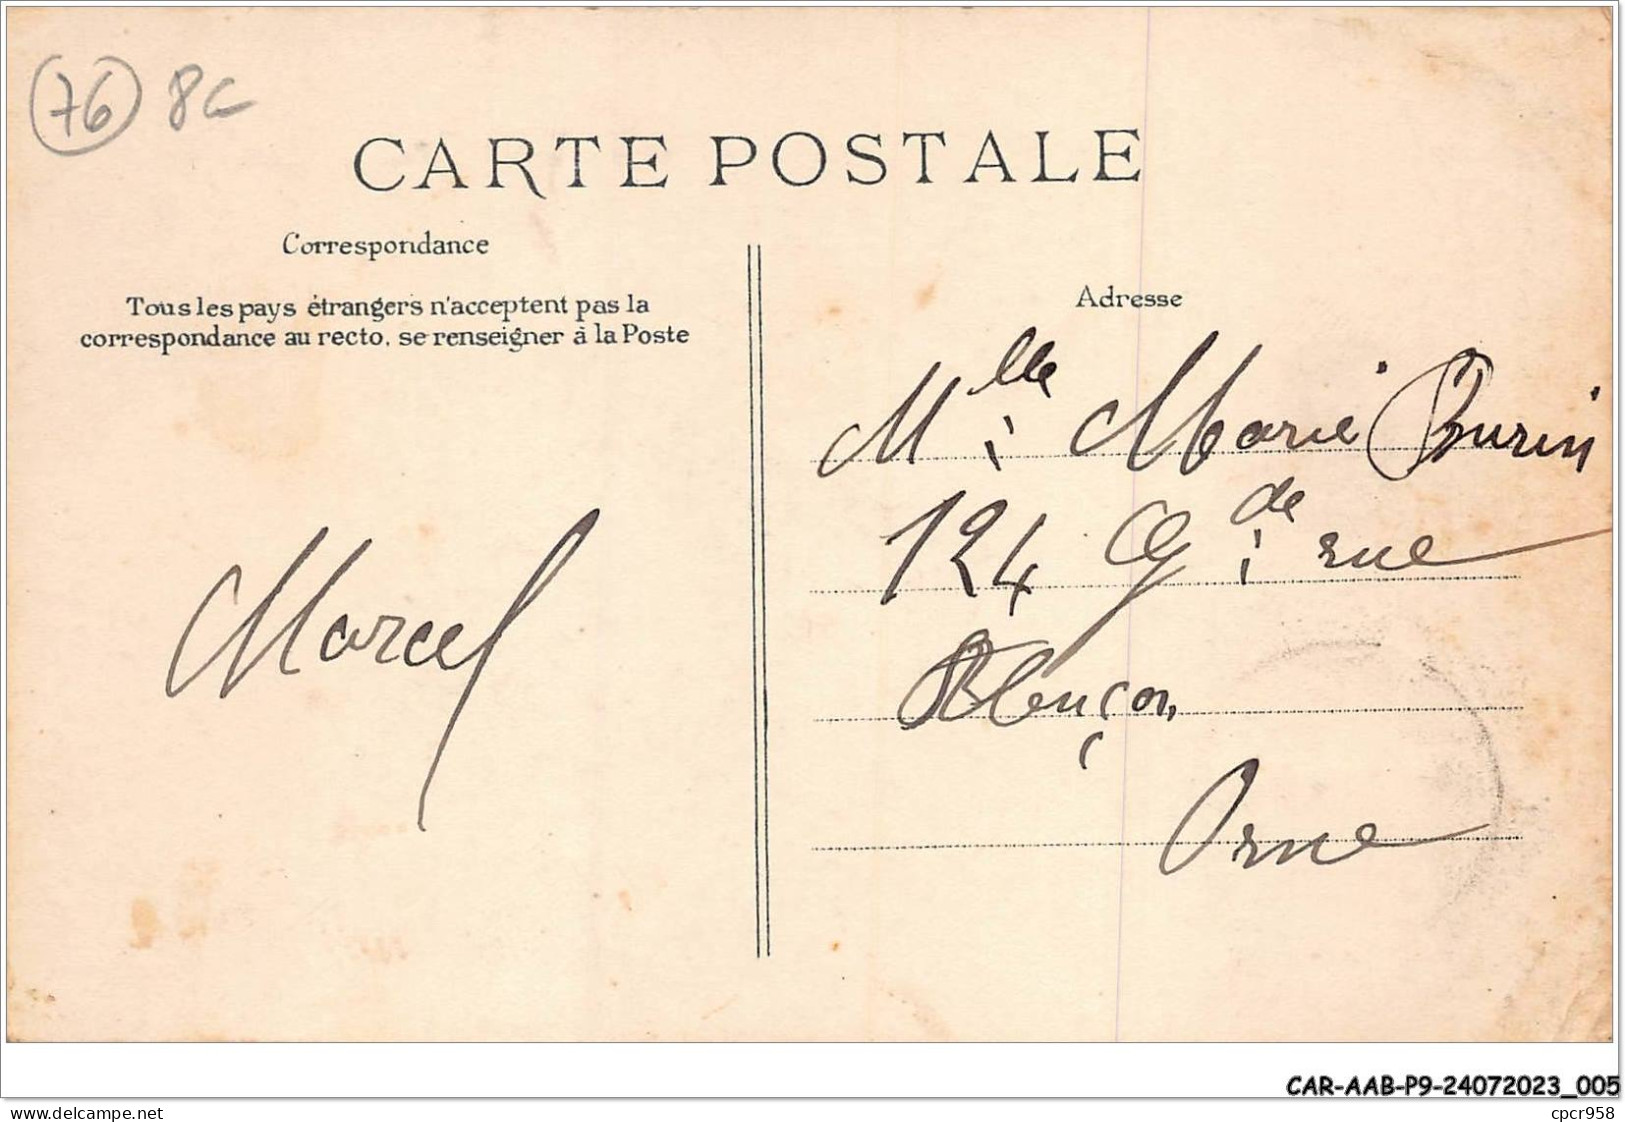 76 8C
CARTE POSTALE
Correspondance
Tous les pays étrangers n'acceptent pas la
correspondance au recto, se renseigner à la Poste
Adresse
Mlle Marie Burin
124 Gde rue
Alençon
Orne
Marcel
CAR-AAB-P9-24072023_005
www.delcampe.net
cpcr958